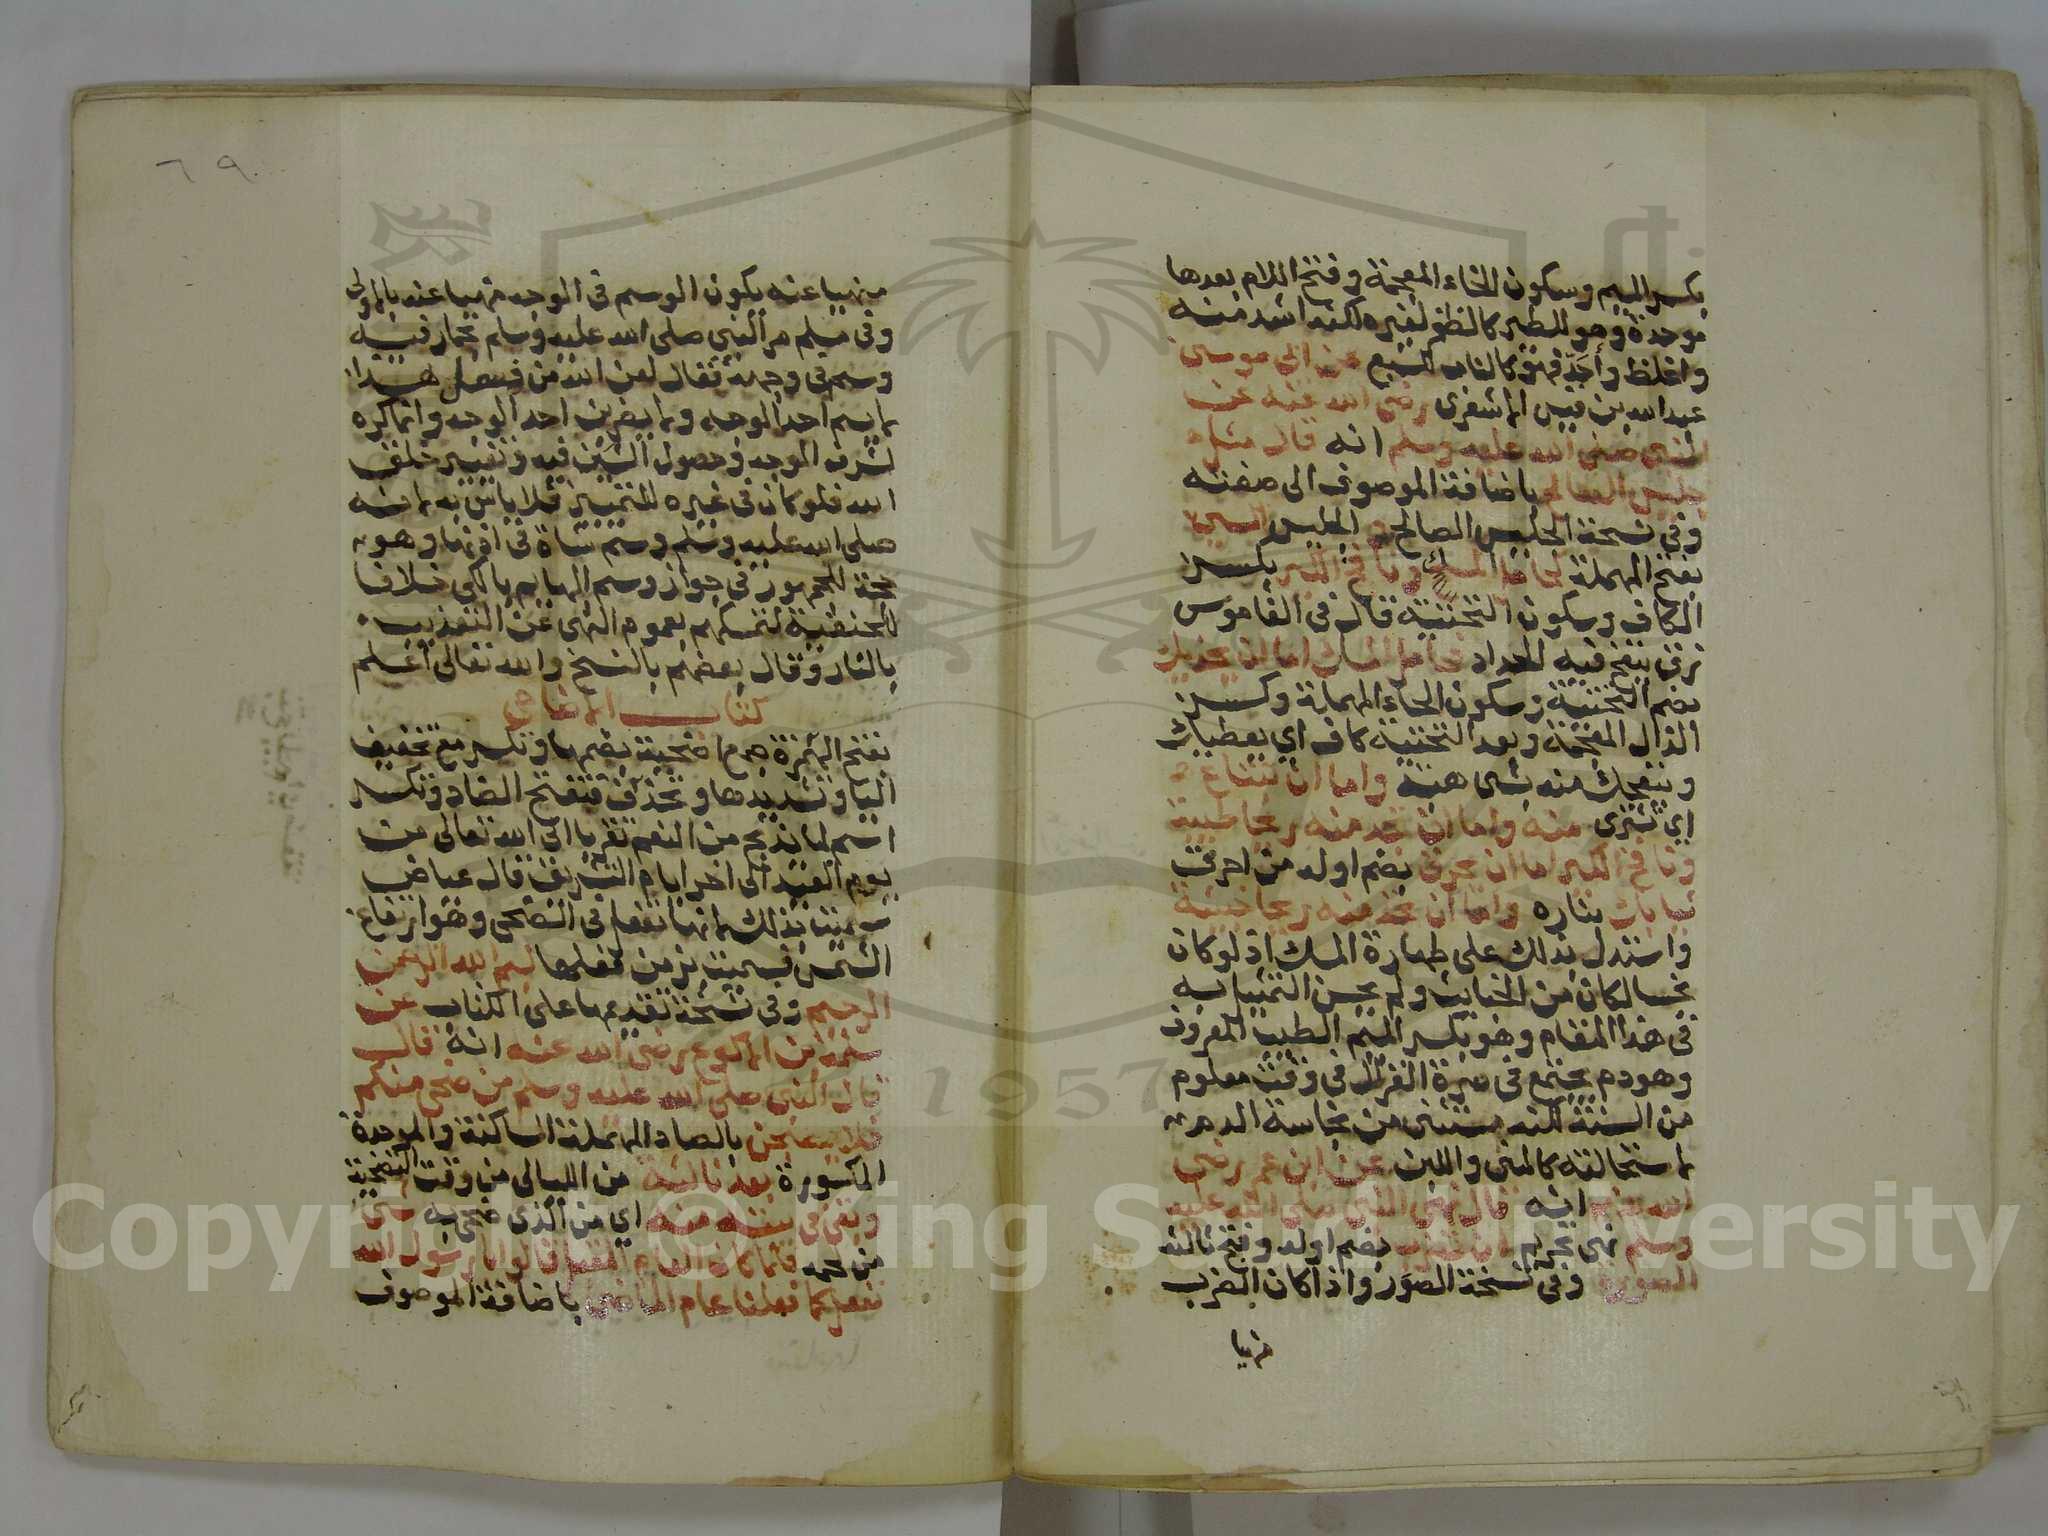 بكسر الميم وسكون الخاء المعجمة وفتح اللام بعدها
موحدة وهو للطير كالظفر لغيره لكنه اشد منه
واغلظ وأحَدّ فهو كالناب للسبع عن ابى موسى
عبد الله بن قيس الاشعرى رضى الله عنه عن
النبى صلى الله عليه وسلم انه قال مثل
جليس الصالح باضافة الموصوف الى صفته
وفى نسخة الجليس الصالح والجليس السوء
بفتح المهملة كحامل المسك ونافخ الكير بكسر
الكاف وسكون التحتية قال فى القاموس
زق ينفخ فيه الحداد فحامل المسك اما ان يحذيك
بضم التحتية وسكون الحاء المهملة وكسر
الذال المعجمة وبعد التحتية كاف اي يعطيك
ويتحفك منه بشى هبة واما ان تبتاع
اي تشترى منه واما ان تجد منه ريحا طيبة
ونافخ الكير اما ان يحرق بضم اوله من احرق
ثيابك بناره واما ان تجد منه ريحا خبيثة
واستدل بذلك على طهارة المسك اذ لو كان
نجسا لكان من الخبايث ولم يحسن التمثيل به
فى هذا المقام وهو بكسر الميم الطيب المعروف
وهو دم يجتمع فى سرة الغزال فى وقت معلوم
من السنة لكنه مستثنى من نجاسة الدم
لاستحالته كالمنى واللبن عن ابن عمر رضى
الله عنهما انه قال نهى النبى صلى الله عليه
وسلم نهى تحريم ان تضرب بضم اوله وفتح ثالثه
الصورة وفى نسخة الصور واذا كان الضرب
منهيا
٦٩
منهيا عنه يكون الوسم فى الوجه منهيا عنه بالاولى
وفى مسلم مر النبى صلى الله عليه وسلم بحمار فيه
وسم فى وجهه فقال لعن الله من فعل هذا
لا يسم احد الوجه ولا يضربن احد الوجه وانما كره
لشرف الوجه وحصول الشين فيه وتغيير خلق
الله فلو كان فى غيره للتمييز فلا باس به لانه
صلى الله عليه وسلم وسم شاة فى اذنها وهو
حجة للجمهور فى جواز وسم البهايم بالكى خلافا
للحنفية لتمسكهم بعموم النهى عن التعذيب
بالنار وقال بعضهم بالنسخ والله تعالى اعلم
كتاب الاضاحى
بفتح الهمزة جمع اضحية بضمها وتكسر مع تخفيف
اليا وتشديدها وتحذف فتفتح الضاد وتكسر
اسم لما يذبح من النعم تقربا الى الله تعالى من
يوم العيد الى اخر ايام التشريق قال عياض
سميت بذلك لانها تفعل فى الضحى وهو ارتفاع
الشمس فسميت بزمن فعلها بسم الله الرحمن
الرحيم وفى نسخة تقديمها على الكتاب عن
سلمة بن الاكوع رضى الله عنه انه قال
قال النبى صلى الله عليه وسلم من ضحى منكم
فلا يصبحن بالصاد المهملة الساكنة والموحدة
المكسورة بعد ثالثة من الليالى من وقت التضحية
وبقى فى بيته منه اي من الذى ضحى به شى
من لحمه فلما كان العام المقبل قالوا يا رسول الله
نفعل كما فعلنا عام الماضى باضافة الموصوف